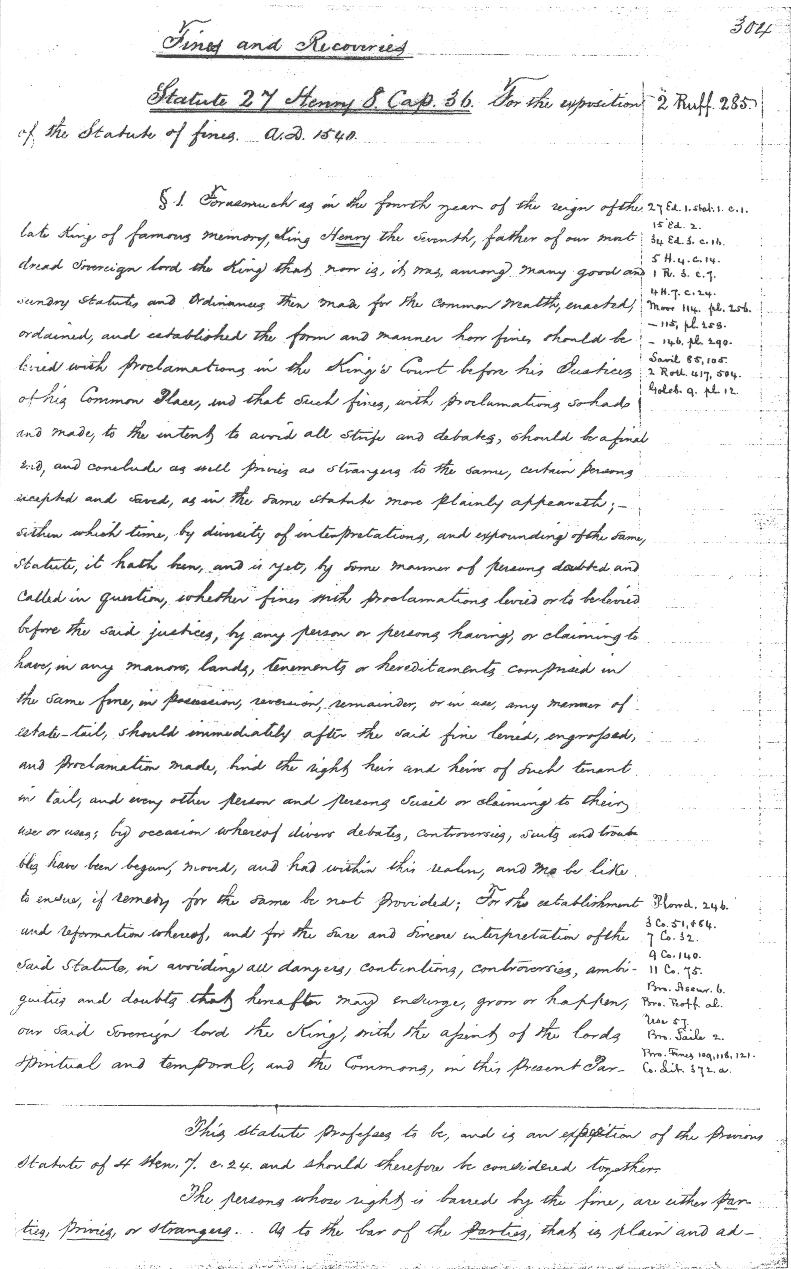 304
Fines and Recoveries
Statute 27 Henry 8. Cap. 36. For the exposition
2 Ruff. 285.
of the Statute of fines. A.D. 1540.
§ 1. Forasmuch as in the fourth year of the reign of the
late King of famous memory, King Henry the Seventh, father of our most
dread Sovereign lord the King that now is, it was, among many good and
sundry Statutes and Ordinances then made for the Common Wealth, enacted,
ordained, and established the form and manner how fines should be
levied with Proclamations in the King's Court before his Justices
of his Common Place, and that such fines, with proclamations so had
and made, to the intent to avoid all strife and debates, should be a final
end, and conclude as well privies as strangers to the same, certain persons
excepted and saved, as in the same statute more plainly appeareth; –
within which time, by diversity of interpretations, and expounding of the same,
Statute, it hath been, and is yet, by some manner of persons doubted and
called in question, whether fines with proclamations levied or to be levied
before the said justices, by any person or persons having, or claiming to
have, in any manors, lands, tenements or hereditaments comprised in
the same fine, in possession, reversion, remainder, or in use, any manner of
estate-tail, should immediately after the said fine levied, engrossed,
and Proclamation made, bind the right heir and heirs of such tenant
in tail, and every other person and persons seised or claiming to their
use or uses; by occasion whereof divers debates, controversies, suits and trou-
bles have been begun, moved, and had within this realm, and mo be like
to ensue, if remedy for the same be not provided; For the establishment
and reformation whereof, and for the sure and sincere interpretation of the
said Statute, in avoiding all dangers, contentions, controversies, ambi-
guities and doubts that hereafter may ensurge, grow or happen,
our said Sovereign lord the King, with the assent of the lords
Spiritual and temporal, and the Commons, in this present Par-
27 Ed. 1. stat. 1. c. 1.
15 Ed. 2.
34 Ed. 3. c. 16.
5 H. 4. c. 14.
1 R. 3. c. 7.
4 H. 7. c. 24.
Moor 114. pl. 256.
– 115, pl. 258.
– 146. pl. 290.
Savil 85, 105.
2 Roll. 417, 504.
Goldb. 9. pl. 12.
Plowd. 246.
3 Co. 51, + 84.
7 Co. 32.
9 Co. 140.
11 Co. 75.
Bro. Assur. 6.
Use 57.
Bro. Taile 2.
Bro. Fines 109, 118, 121.
Co. Lit. 372. a.
This Statute professes to be, and is an exposition of the previous
Statute of 4 Hen. 7. c. 24. and should therefore be considered together.
The persons whose right is barred by the fine, are either par-
ties, privies, or strangers. . As to the bar of the Parties, that is plain and ad-